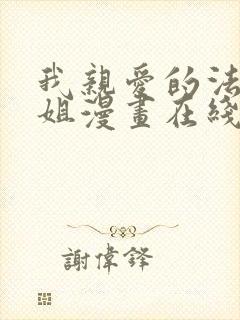 我親愛的法
姐漫畫在綫
謝偉鋒